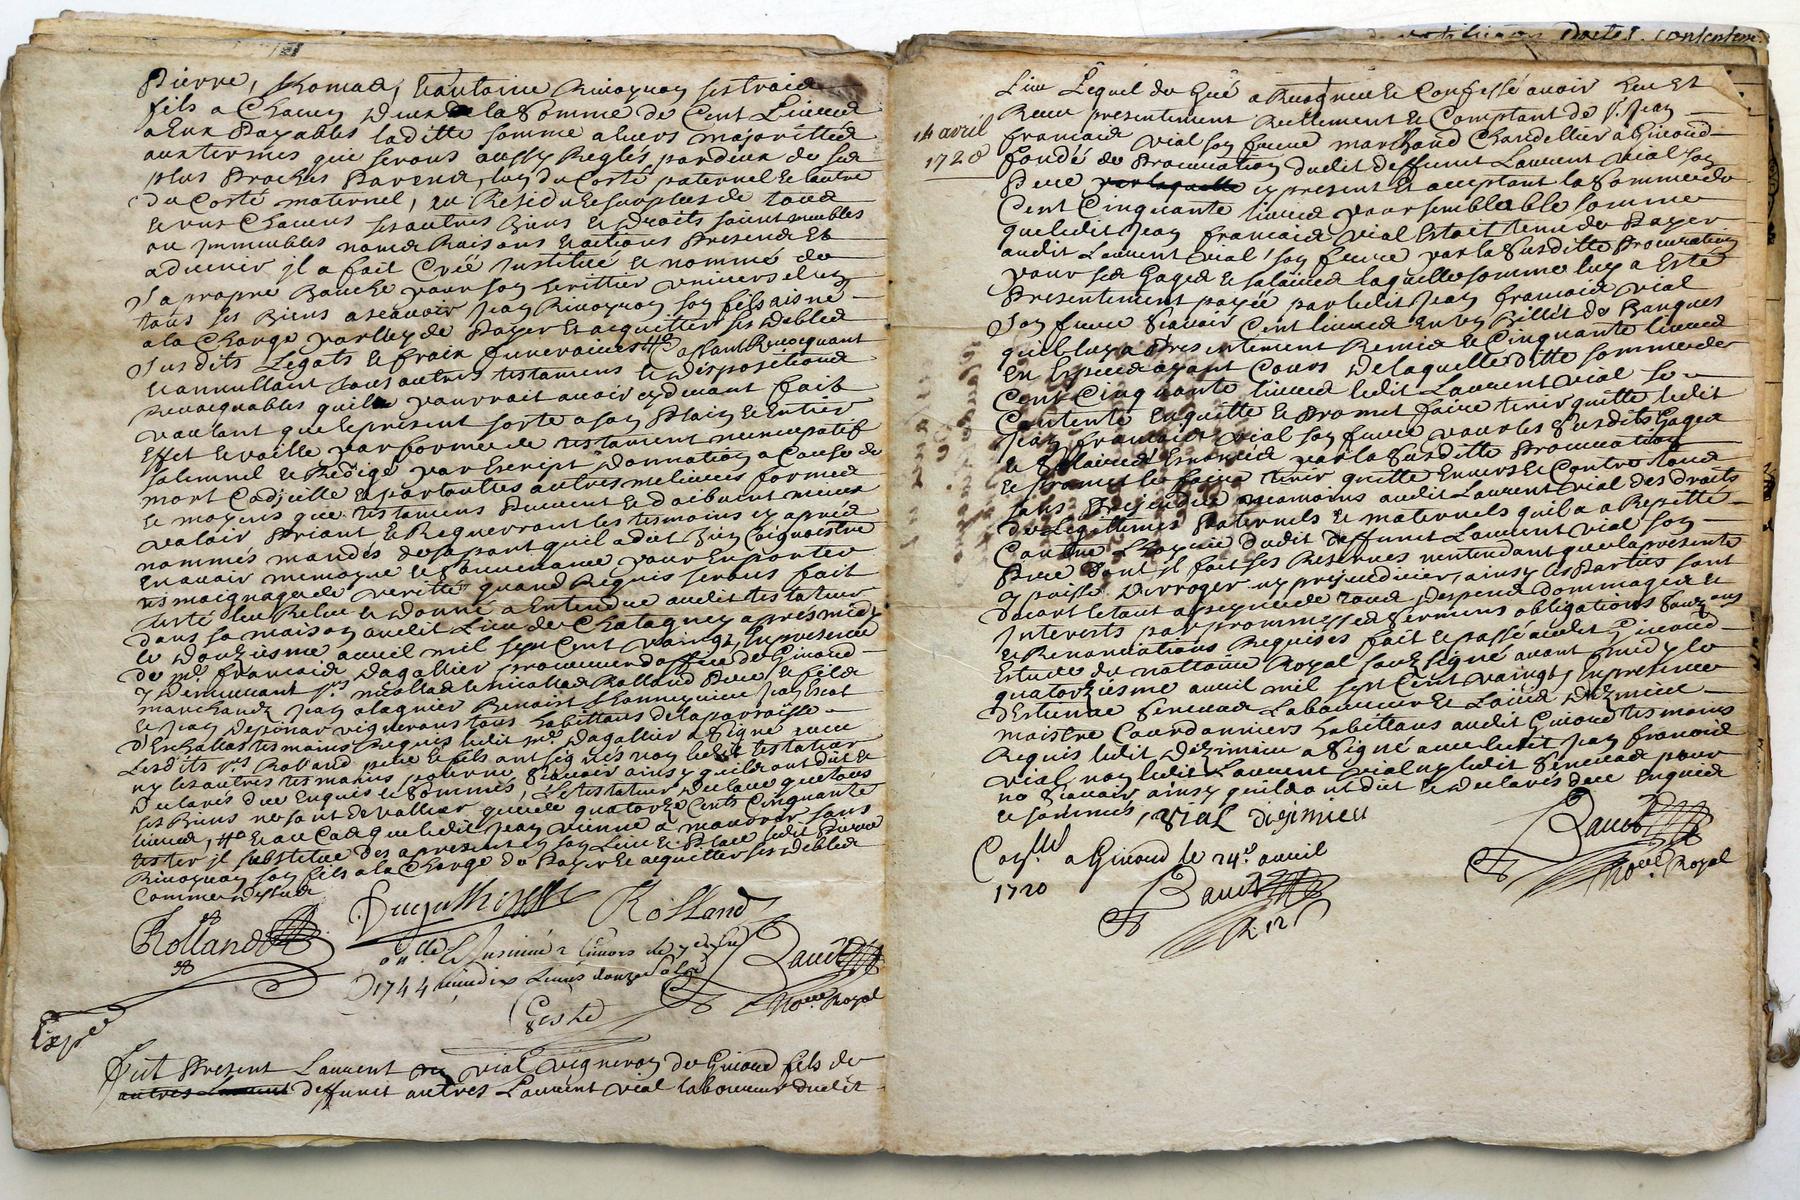 Pierre, Thomas, Et antoine Rivoyron ses trois
fils a Chacun deux de la Somme de Cent Livres
a Eux payables laditte somme a leurs majorittes
aux termes qui serons aussy Reglés par deux de ses
plus Proches Parens, lun du Costé paternel Et lautre
du Costé maternel, au Residu Et surplus de tous
Et uns Chacuns ses autres Biens Et Droits soint meubles
ou jmmeubles noms Raisons Et actions Presens Et
aduenir jl a fait Créé Jnstitué Et nommé de
Sa propre Bouche pour son heritier universel En
tous ses Biens ascauoir Jean Rivoyron son fils aisné
a la Charge par luy de Payer Et acquitter ses debtes
Susdits Legats Et frais funeraires Cassant Revocquant
Et annullant tous autres testamens Et dispositions
Revocquables quil pourroit auoir cy deuant fait
voulant que le present sorte a son Plain Et Entier
Effet Et vaille par forme de testament nuncupatif
solemnel Et Redigé par Escript donnation a Cause de
mort Codicille Et par toutes autres melieures formes
Et moyens que testamens Peuuent Et doibuent mieux
valoir Priant Et Requerrant les tesmoins cy apres
nommés mandés de sa part quil a dit bien Coignoistre
En auoir memoyre Et souuenance pour En porter
tesmoignage de verité quand Requis serons fait
Leu Releu Et donné a Entendre audit testateur
dans sa maison audit Lieu de Chatagney apres midy
le douziesme auril mil sept Cent vaingt, En presence
de me francois Dagallier procureur doffice de Giuord
y demeurant srs nicollas Et nicollas Rolland Pere Et fils
marchands Jean alagnier Benoist Jean Escot
Et Jean vignerons tous habittans de la parroisse
tesmoins Requis ledit me Dagallier a Signé auec
Lesdits srs Rolland pere Et fils ont signés non ledit testateur
ny les autres tesmoins pour ne Scauoir ainsy quils ont dit Et
declarés due Enquis Et Sommés, Le testateur declare que tous
ses Biens ne sont de valleur que de quatorze Cents Cinquante
liures, Et au Cas que ledit Jean vienne a mourir sans
tester jl substitue des a present En son Lieu Et Place ledit Pierre
Rivoyron son fils a la Charge de Payer Et acquitter ses debtes
Comme dessus
Rolland
Rolland
1744
Baud
Nore Royal
Expé
Fut Present Laurent vial vigneron de Giuord fils de
deffunct autres Laurent vial laboureur dudit
14 avril
1720
Lieu Lequel de Gré a Recogneu Et Confessé auoir Heu Et
Receu presentement Reellement Et Comptant de Sr Jean
francois vial son frere marchand Chandellier a Giuord
fondé de Procuration dudit deffunct Laurent vial son
Pere par laquelle cy present Et acceptant la Somme de
Cent Cinquante liures pour semblable somme
que ledit Jean francois vial Estoit tenu de Payer
audit Laurent vial son frere par la Susditte Procuration
pour ses Gages Et salaires laquelle somme luy a Esté
Presentement payée par ledit Jean francois vial
Son frere Scauoir Cent liures En un Billet de Banques
quil luy a Presentement Remis Et Cinquante liures
En Especes ayant Cours de laquelle ditte somme de
Cent Cinquante liures ledit Laurent vial se
Contente En quitte Et Promet faire tenir quitte ledit
Jean francois vial son frere pour les Susdits Gages
Et Salaires Enoncés par la Susditte Procuration
Et promet les faire tenir quitte Enuers Et Contre tous
sans Prejudice neamoins audit Laurent vial des droits
de Legitimes Paternels Et maternels quil a a Repetter
Contre Lhoyrie dudit deffunct Laurent vial son
Pere dont jl fait ses Reserues nentendant que la presente
y puisse derroger ny prejudicier, ainsy les Parties sont
dacort Et tout a peyne de tous despens dommages Et
Jnterests par prommesses Sermens obligations Soumissions
Et Renonciations Requises fait Et passé audit Giuord
Estude du nottaire Royal soubzsigné auant midy le
quatorziesme auril mil sept Cent vaingt, En presence
dEstienne Seneuas Laboureur Et Louis Dizimieu
maistre Courdonniers habittans audit Giuord tesmoins
Requis ledit Dizimieu a Signé auec ledit Jean francois
vial, non ledit Laurent vial ny ledit Seneuas pour
ne Scauoir ainsy quils ont dit Et declarés due Enquis
Et Sommés, Vial Dizimieu
Baud
Nore Royal
Conllé a Giuord le 24e auril
1720
Baud
R 12 s